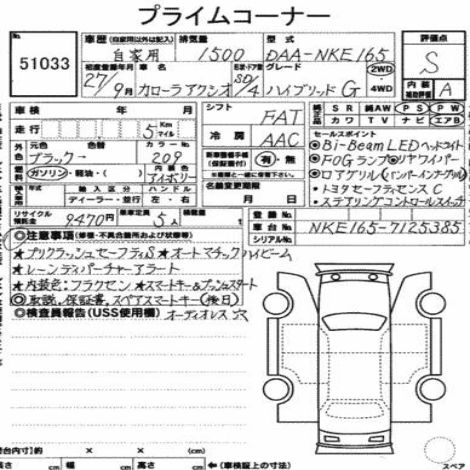 プライムコーナー
51033
車歴(自家用以外は記入) 排気量 型式 評価点
自家用 1500 DAA-NKE165 S
初度登録年月 車名 ドア 形状 グレード 2WD 4WD
27/9月 カローラアクシオ SD/4 ハイブリッド G
内装 補助評価 A
車検 年 月 シフト FAT
SR 純AW PS PW
カワ TV ナビ エアB
走行 5 Km マイル 冷房 AAC
セールスポイント
◎Bi-Beam LED ヘッドライト
◎FOGランプ リヤワイパー
◎ロアグリル(バンパーインナーグリル)
・トヨタセーフティセンス C
・ステアリングコントロールスイッチ
外色 元色 色替 カラーNo.
ブラック→ 209
燃料 ガソリン・軽油・( ) 内装色 アイボリー
新車整備手帳(保証書付) 有・無
名義変更期限
月 日
輸入車 輸入区分 ハンドル
ディーラー・並行 左・右
リサイクル預託金 9470円 乗車定員 5人 積載量
登録No.
車台No. NKE165-7125385
シリアルNo.
◎注意事項(修復・不具合箇所および状態等)
*プリクラッシュセーフティS *オートマチックハイビーム
*レーンディパーチャーアラート
*内装色:フラクセン *スマートキー&プッシュスタート
◎取説、保証書、スペアスマートキー(後日)
◎検査員報告(USS使用欄) オーディオレス穴
荷台内寸 約 × × cm
長さ cm 幅 cm 高さ cm ←(車検証上の寸法)
スペア